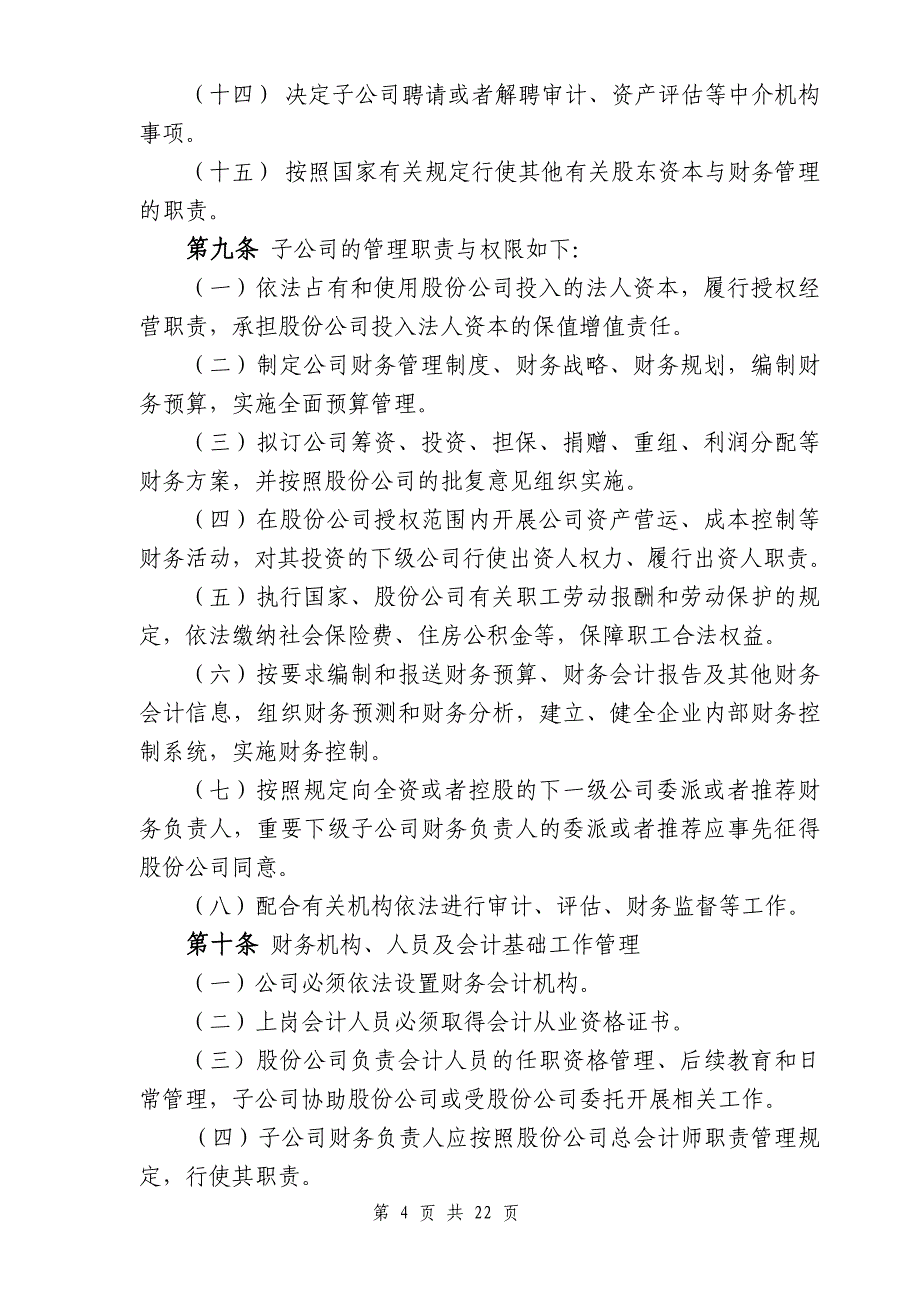 （十四） 决定子公司聘请或者解聘审计、资产评估等中介机构
事项。
（十五） 按照国家有关规定行使其他有关股东资本与财务管理
的职责。
第九条 子公司的管理职责与权限如下：
（一）依法占有和使用股份公司投入的法人资本，履行授权经
营职责，承担股份公司投入法人资本的保值增值责任。
（二）制定公司财务管理制度、财务战略、财务规划，编制财
务预算，实施全面预算管理。
（三）拟订公司筹资、投资、担保、捐赠、重组、利润分配等
财务方案，并按照股份公司的批复意见组织实施。
（四）在股份公司授权范围内开展公司资产营运、成本控制等
财务活动，对其投资的下级公司行使出资人权力、履行出资人职责。
（五）执行国家、股份公司有关职工劳动报酬和劳动保护的规
定，依法缴纳社会保险费、住房公积金等，保障职工合法权益。
（六）按要求编制和报送财务预算、财务会计报告及其他财务
会计信息，组织财务预测和财务分析，建立、健全企业内部财务控
制系统，实施财务控制。
（七）按照规定向全资或者控股的下一级公司委派或者推荐财
务负责人，重要下级子公司财务负责人的委派或者推荐应事先征得
股份公司同意。
（八）配合有关机构依法进行审计、评估、财务监督等工作。
第十条 财务机构、人员及会计基础工作管理
（一）公司必须依法设置财务会计机构。
（二）上岗会计人员必须取得会计从业资格证书。
（三）股份公司负责会计人员的任职资格管理、后续教育和日
常管理，子公司协助股份公司或受股份公司委托开展相关工作。
（四）子公司财务负责人应按照股份公司总会计师职责管理规
定，行使其职责。
第 4 页 共 22 页